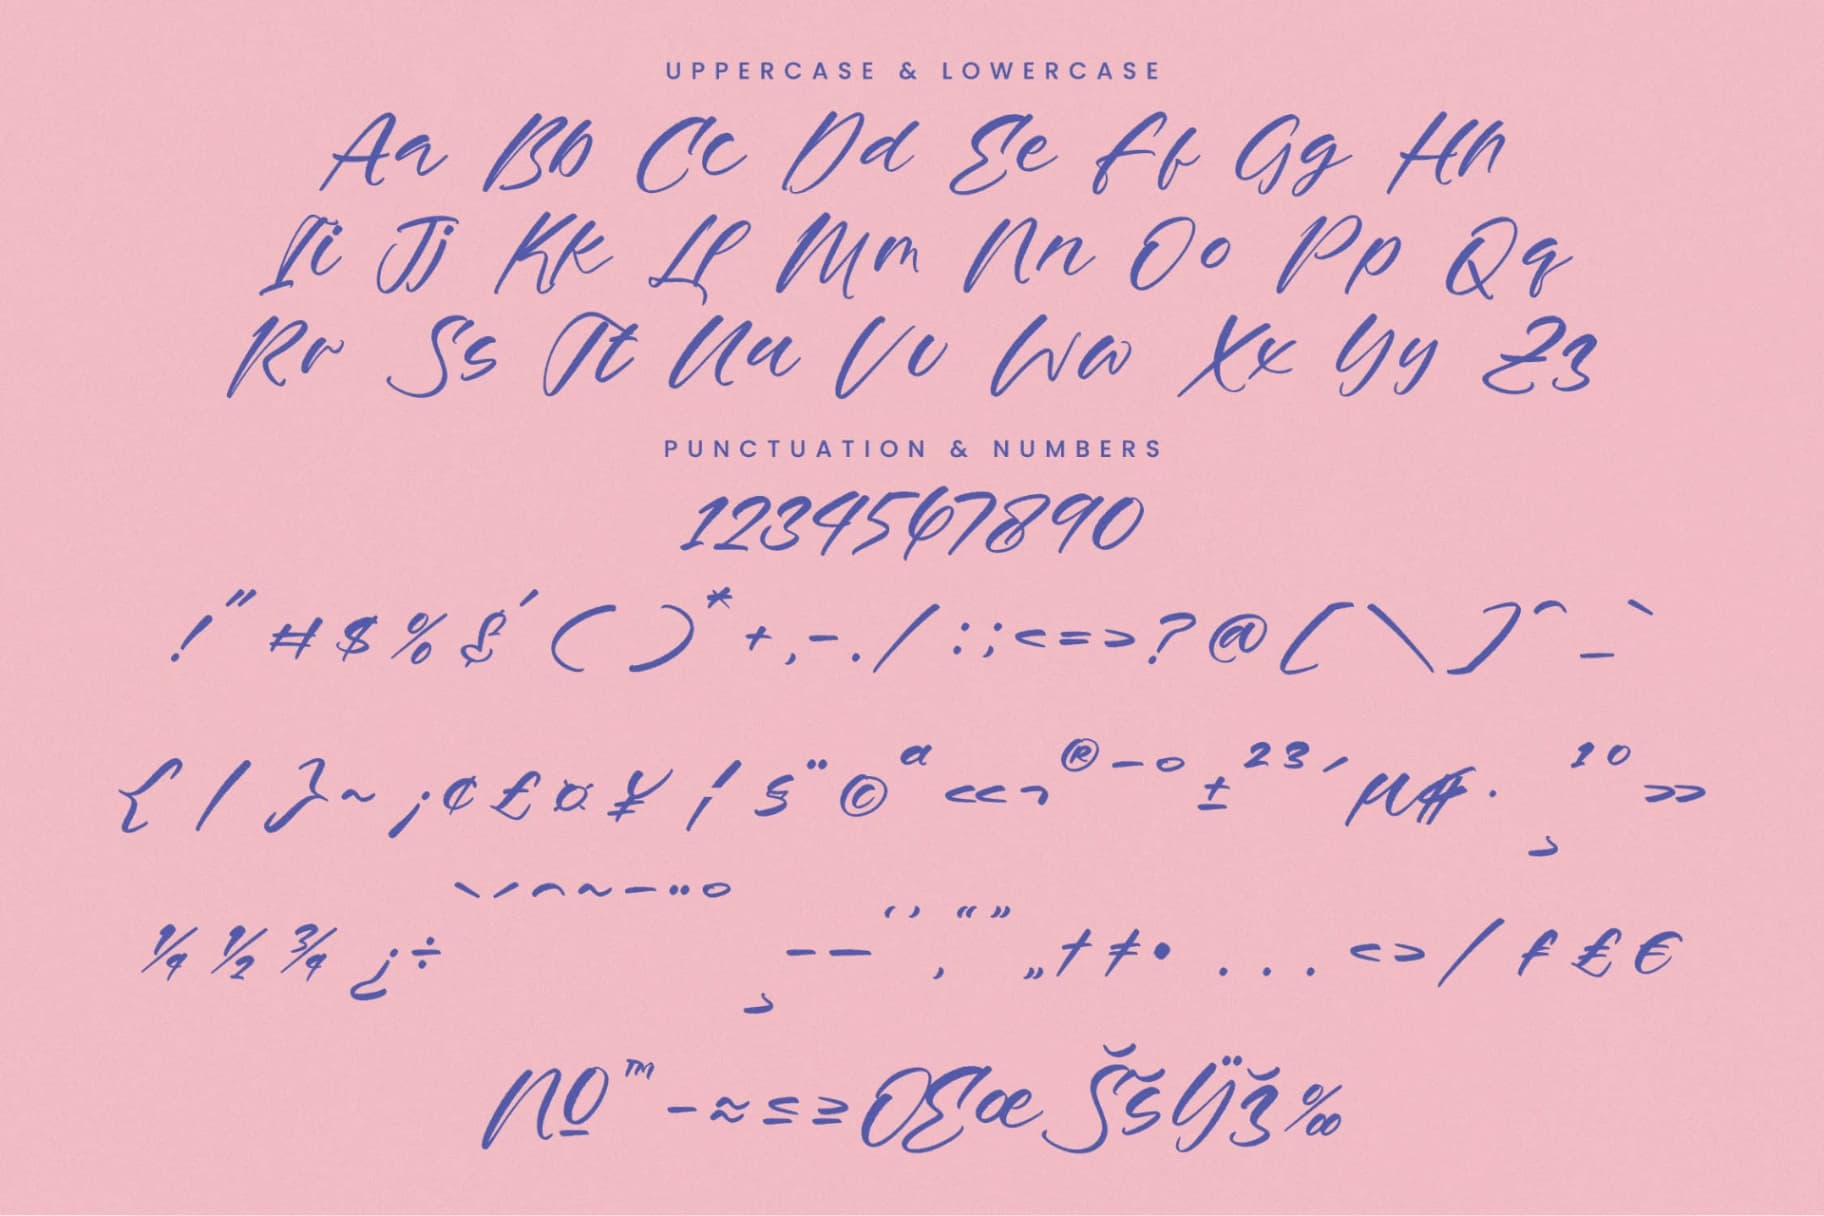 UPPERCASE & LOWERCASE
Aa Bb Cc Dd Ee Ff Gg Hh
Ii Jj Kk Ll Mm Nn Oo Pp Qq
Rr Ss Tt Uu Vv Ww Xx Yy Zz
PUNCTUATION & NUMBERS
1234567890
! " # $ % & ' ( ) * + , - . / : ; < = > ? @ [ \ ] ^ _ `
{ | } ~ ¡ ¢ £ ¤ ¥ ¦ § ¨ © ª « ¬ ® ¯ ° ± ² ³ ´ µ ¶ · ¸ ¹ º »
¼ ½ ¾ ¿ ÷ ` ´ ˆ ˜ ¯ ¨ ˚ ¸ – — ‘ ’ ‚ “ ” „ † ‡ • … ‹ › ⁄ ƒ ₤ €
№ ™ − ≈ ≤ ≥ Œ œ Š š Ÿ ž ‰